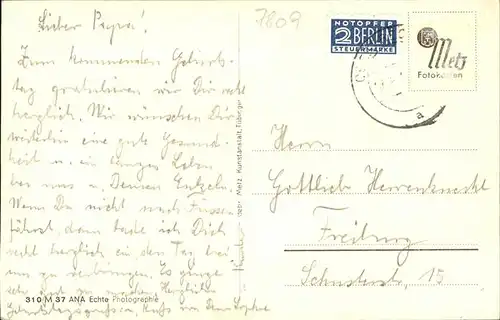 Lieber Papa!
Zum kommenden Geburts-
tag gratulieren wir Dir recht
herzlich. Wir wünschen Dir
weiterhin eine gute Gesund-
heit u. ein langes Leben
bei uns u. Deinen Enkeln.
Wenn Du nicht nach Füssen
fährst, dann lade ich Dich
recht herzlich ein den Tag bei
uns zu verbringen. Es
Geburtstagsgrüsse u. Kuss von Deiner Sophie
310 M 37 ANA Echte Photographie
Gebr. Metz, Kunstanstalt, Tübingen
7809
NOTOPFER
2 BERLIN
STEUERMARKE
Metz
Fotokarten
a
Herrn
Gottlieb Herrenknecht
Freiburg
Schusterstr. 15